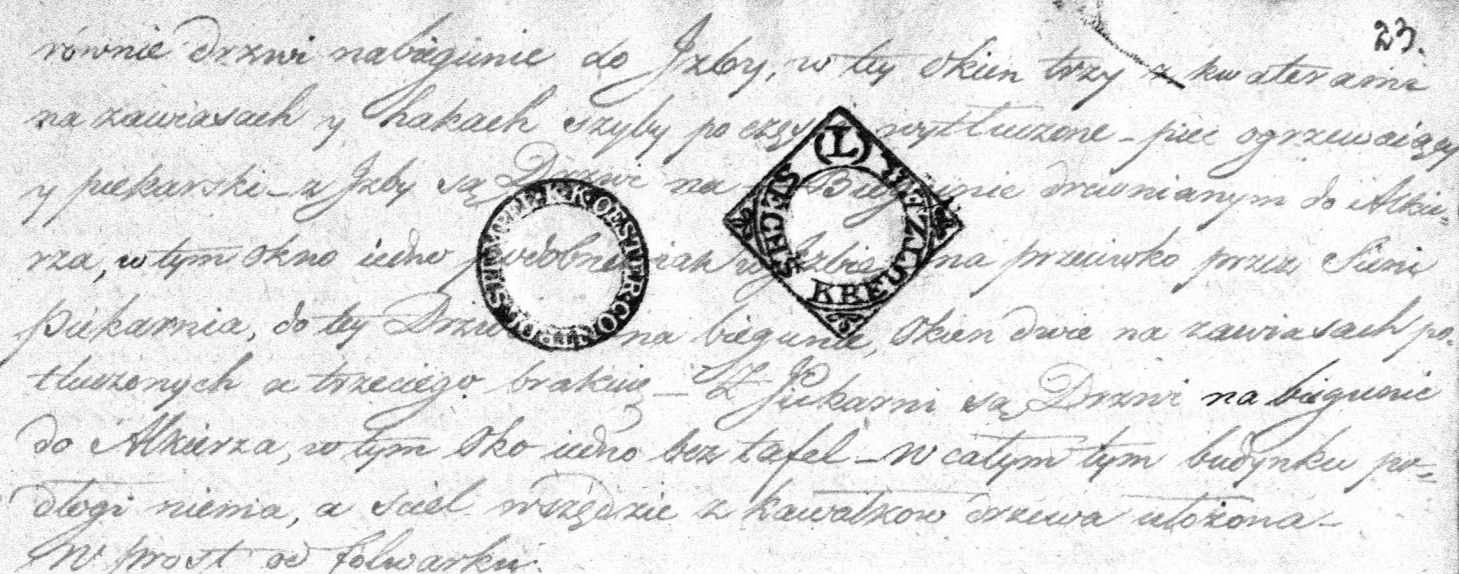 23.
równie drzwi nabiegunie do Jzby, w tey okien trzy z kwaterami
na zawiasach y hakach szyby po wytłuczone – piec ogrzewaiący
y piekarski – z Jzby są na drewnianym do Alkie-
rza, w tym okno iedno na przeciwko przez Sieni
piekarnia, do tey na biegunie, okien dwie na zawiasach po-
tłuczonych a trzeciego brakuię – Z Piekarni są Drzwi na biegunie
do Alkierza, w tym oko iedno bez tafel – W całym tym budynku po-
dłogi niema, a sciel wszędzie z kawałkow drzewa ułożona –
W prost od folwarku.
(L) SECHS KREUTZER
K.K.OESTER: